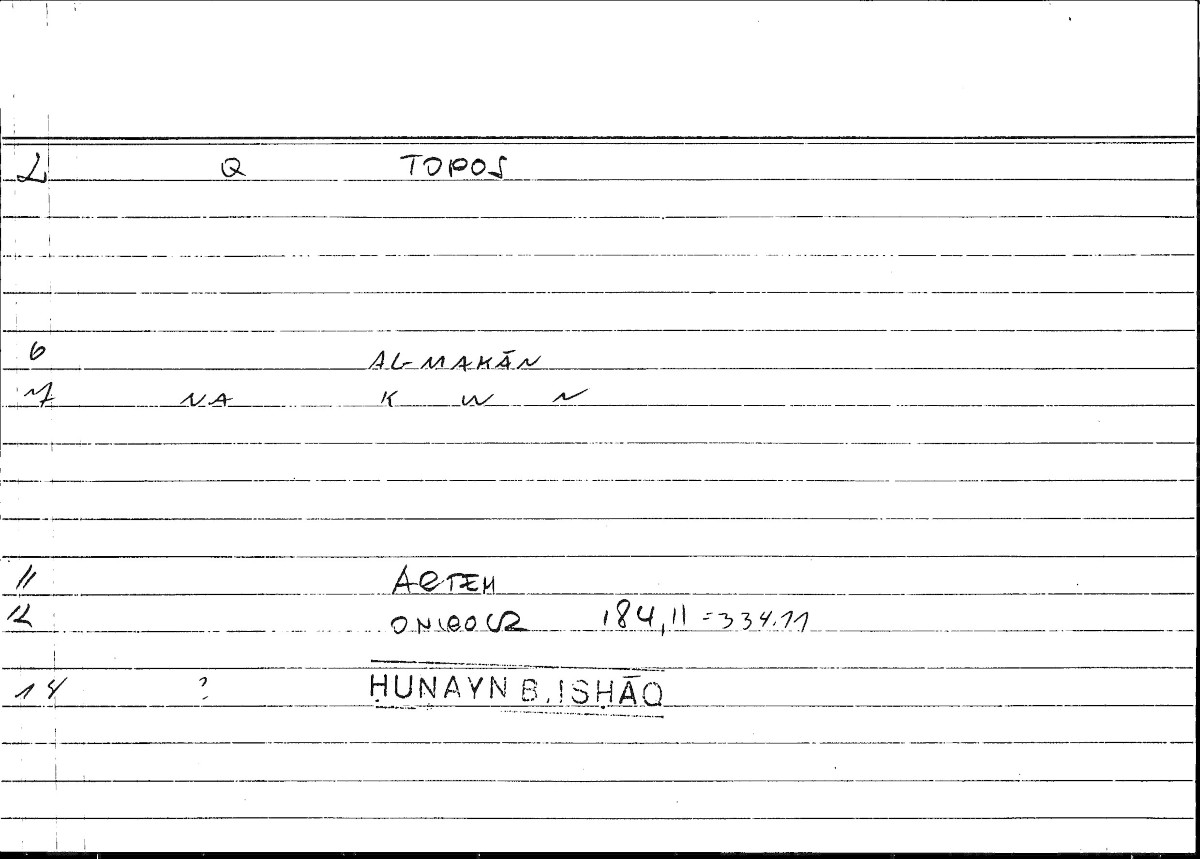 2 Q TOPOS
6 AL-MAKĀN
7 NA K W N
11 ARTEM
12 ONIROCR 184,11 = 334.11
14 ? ḤUNAYN B. ISḤĀQ